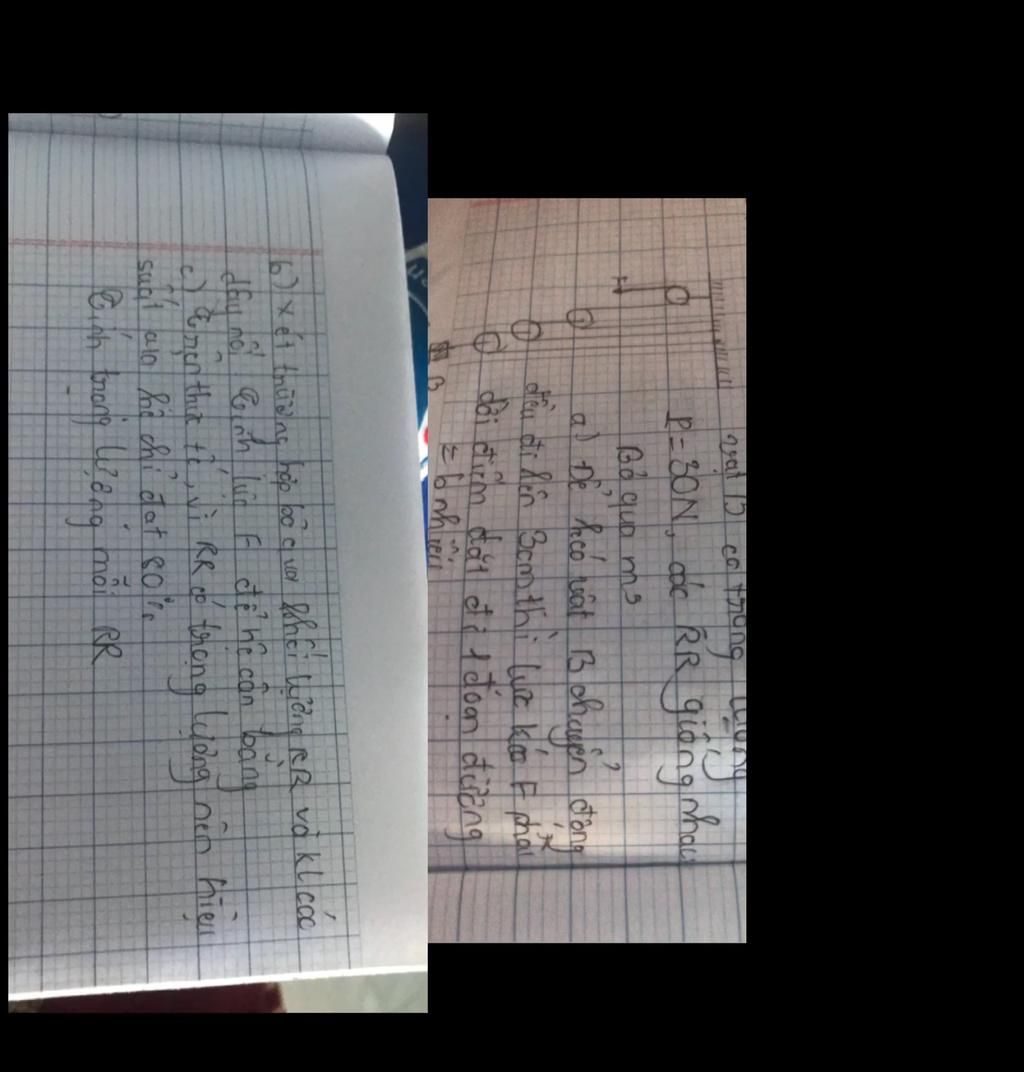 vật B có trọng lượng
P = 30N, các RR giống nhau
Bỏ qua ms
F
a) Để kéo vật B chuyển động
đều đi lên 3cm thì lực kéo F phải
dời điểm đặt đi 1 đoạn đường
B
= bnhiêu
b) xét trường hợp bỏ qua khối lượng RR và kl các
dây nối Tính lực F để hệ cân bằng
c) Trên thực tế, vì RR có trọng lượng nên hiệu
suất của hệ chỉ đạt 80%
Tính trọng lượng mỗi RR